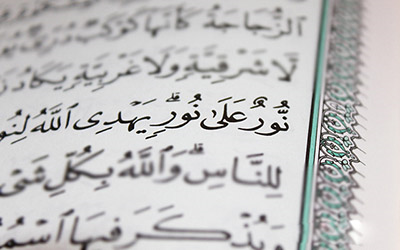 ٱلزُّجَاجَةُ كَأَنَّهَا كَوْكَبٌ دُرِّىٌّ
لَّا شَرْقِيَّةٍ وَلَا غَرْبِيَّةٍ يَكَادُ
نُّورٌ عَلَىٰ نُورٍۗ يَهْدِى ٱللَّهُ لِنُو
لِلنَّاسِۗ وَٱللَّهُ بِكُلِّ شَىْ
وَيُذْكَرَ فِيهَا ٱسْمُ